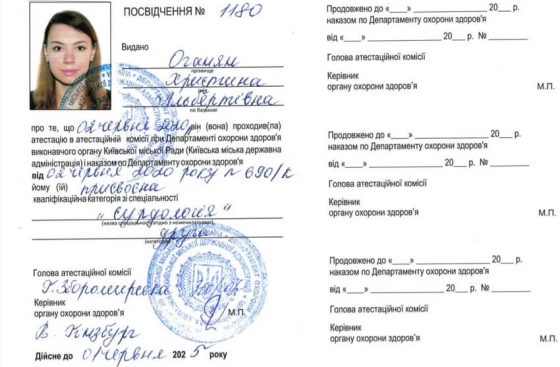 ПОСВІДЧЕННЯ № 1180
Видано Оганян
прізвище
Христина
ім'я
Альбертівна
по батькові
про те, що 02 червня 2020 він (вона) проходив(ла)
атестацію в атестаційній комісії при Департаменті охорони здоров'я
виконавчого органу Київської міської Ради (Київська міська державна
адміністрація) і наказом по Департаменту охорони здоров'я
від 02 червня 2020 року № 690/к
йому (їй) присвоєна
кваліфікаційна категорія зі спеціальності
„сурдологія"
(назва спеціальності згідно з номенклатурою)
друга
(категорія)
Голова атестаційної комісії
Керівник
органу охорони здоров'я М.П.
В. Гінзбург
Дійсне до 01 червня 2025 року
Продовжено до «____» ________ 20___ р.
наказом по Департаменту охорони здоров'я
від «____» ________ 20___ р. № ________
Голова атестаційної комісії
Керівник
органу охорони здоров'я М.П.
Продовжено до «____» ________ 20___ р.
наказом по Департаменту охорони здоров'я
від «____» ________ 20___ р. № ________
Голова атестаційної комісії
Керівник
органу охорони здоров'я М.П.
Продовжено до «____» ________ 20___ р.
наказом по Департаменту охорони здоров'я
від «____» ________ 20___ р. № ________
Голова атестаційної комісії
Керівник
органу охорони здоров'я М.П.